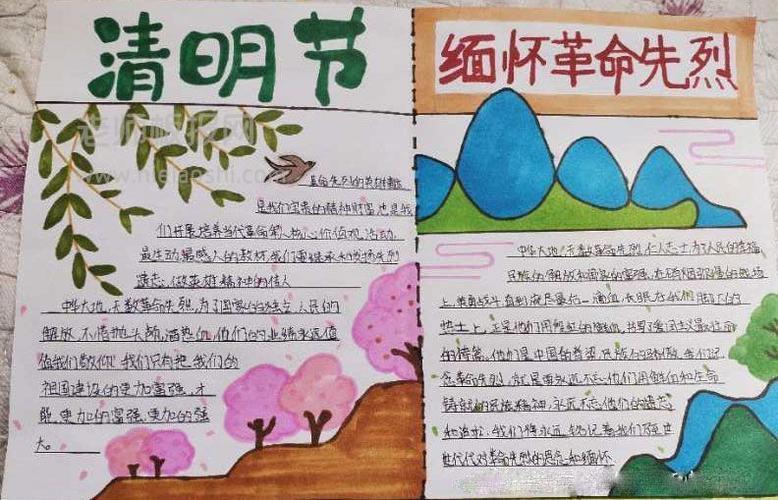 清明节
缅怀革命先烈
老师板报网
革命先烈的英雄事迹
是我们宝贵的精神财富也是我
们开展培养当代革命 核心价值观活动.
最生动最感人的教材.我们要继承和发扬先烈
遗志,做英雄精神的传人
中华大地,无数革命先烈,为了国家的独立,人民的
解放,不惜抛头颅,洒热血,他们的业绩永远值
值我们敬仰.我们只有把 我们的
祖国建设的更加富强,才
能 更加的富强,更加的强
大。
中华大地,无数革命先烈,仁人志士为了人民的幸福
民族的解放和国家的富强,在硝烟弥漫的战场
上,英勇战斗直到流尽最后一滴血,长眠在我们脚下的
热土上,正是他们用鲜红的热血,书写了爱国主义最壮丽
的诗篇,他们是中国的脊梁,民族的骄傲,我们纪
念革命先烈,就是要永远不忘他们用鲜血和生命
铸就的民族精神,永远不忘他们的遗志
和追求,我们将永远 铭记着我们
世代代对革命先烈的思念和缅怀